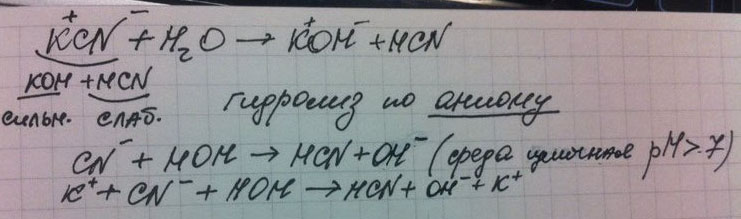 K⁺CN⁻ + H₂O → K⁺OH⁻ + HCN
KOH + HCN
сильн. слаб. гидролиз по аниону
CN⁻ + HOH → HCN + OH⁻ (среда щелочная pH > 7)
K⁺ + CN⁻ + HOH → HCN + OH⁻ + K⁺